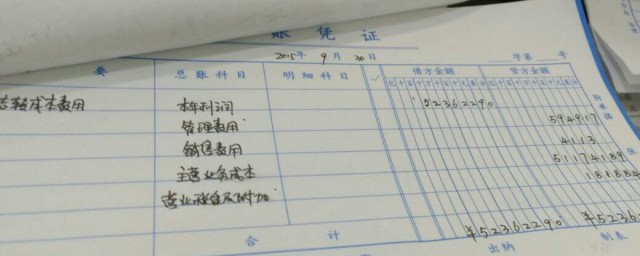 账 凭 证
2015年 9月 30日 字第 号
要 总账科目 明细科目 ✓ 借方金额 贷方金额
成本费用 本年利润 52362290
管理费用 594917
销售费用 4113
主营业务成本 51174189
营业税金及附加 181884
合 计 ¥52362290 ¥5236
出纳 制表